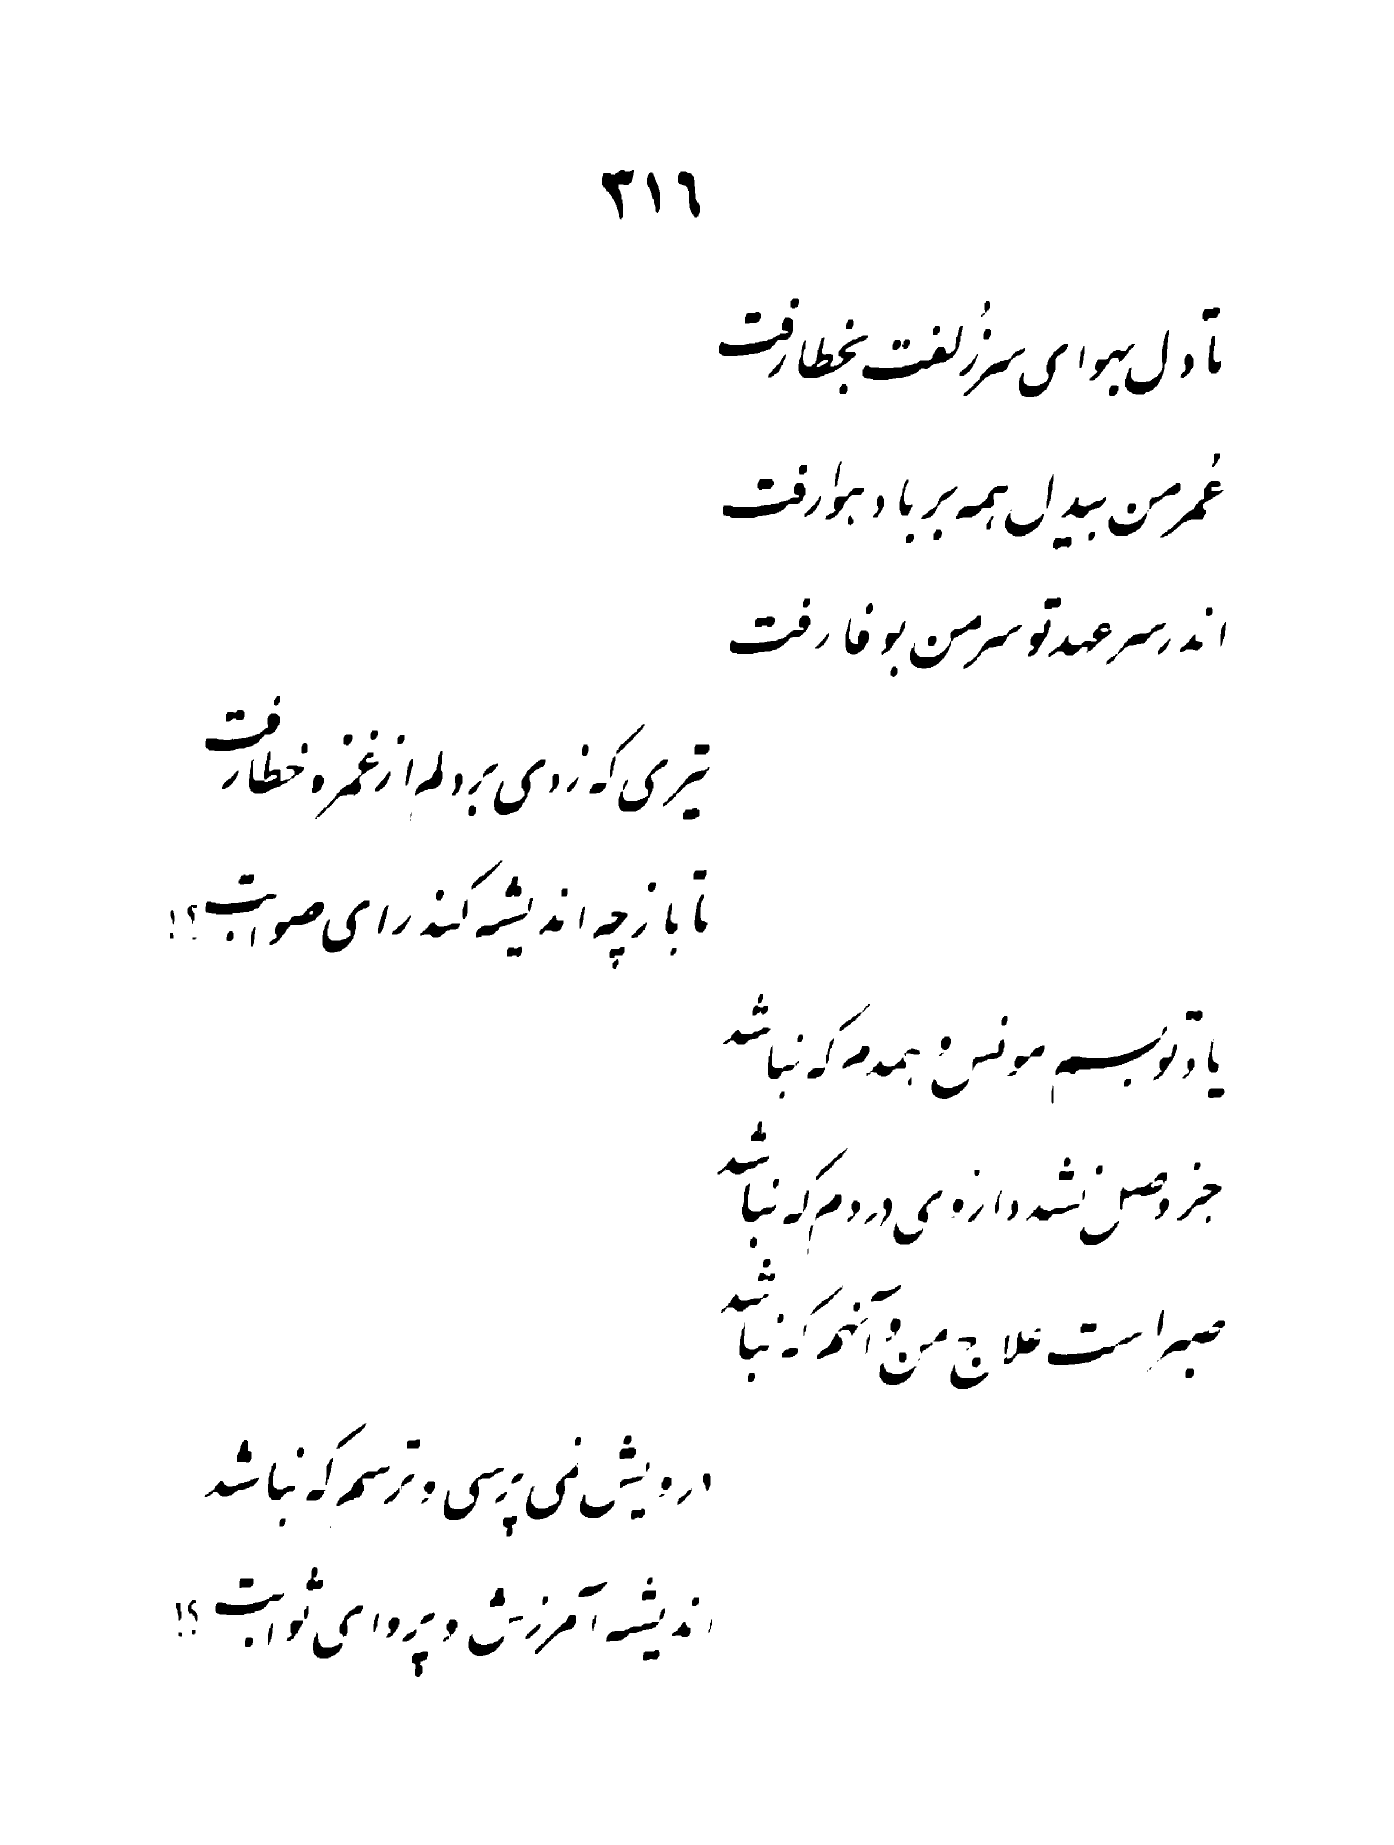 ٣١٦
تا دل بهوای سر زُلفت بخطا رفت
عُمر من بیدل همه بر باد هوا رفت
اندر سر عهد تو سر من بوفا رفت
تیری که زدی بر دلم از غمزه خطا رفت
تا باز چه اندیشه کند رای صوابت؟!
یاد تو بسم مونس و همدم که نباشد
جز وصل نشد داروی دردم که نباشد
صبر است علاج من و آنهم که نباشد
درویش نمی پرسی و ترسم که نباشد
اندیشه آمرزش و پروای ثوابت؟!